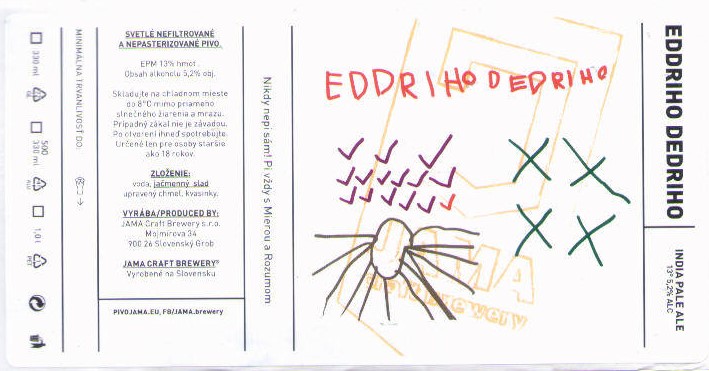 330 ml
500
330 ml
1,0 l
PET
MINIMÁLNA TRVANLIVOSŤ DO:
SVETLÉ NEFILTROVANÉ
A NEPASTERIZOVANÉ PIVO.
EPM 13% hmot.
Obsah alkoholu 5,2% obj.
Skladujte na chladnom mieste
do 8°C mimo priameho
slnečného žiarenia a mrazu.
Prípadný zákal nie je závadou.
Po otvorení ihneď spotrebujte.
Určené len pre osoby staršie
ako 18 rokov.
ZLOŽENIE:
voda, jačmenný slad
upravený chmeľ, kvasinky.
VYRÁBA/PRODUCED BY:
JAMA Craft Brewery s.r.o.
Mojmírova 34
900 26 Slovenský Grob
JAMA CRAFT BREWERY®
Vyrobené na Slovensku
PIVOJAMA.EU, FB/JAMA.brewery
Nikdy nepi sám! Pi vždy s Mierou a Rozumom
EDDRIHO DEDRIHO
JAMA
craft brewery
EDDRIHO DEDRIHO
INDIA PALE ALE
13° 5,2% ALC